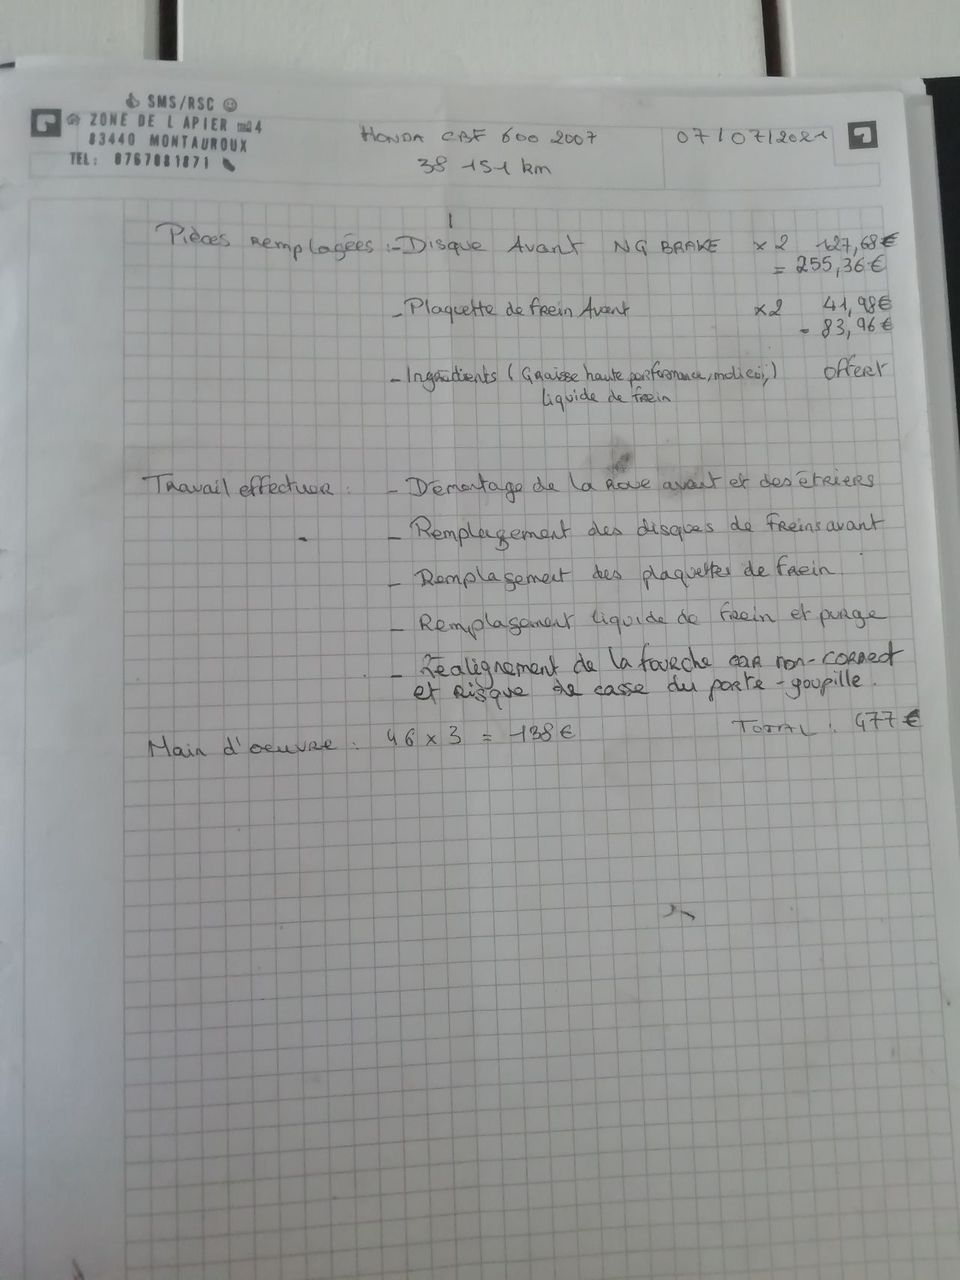 SMS/RSC
ZONE DE L APIER m24
83440 MONTAUROUX
TEL: 0767081871
HONDA CBF 600 2007
38 151 km
07/07/2021
Pièces Remplagées :- Disque Avant NG BRAKE x2 127,68€
= 255,36€
- Plaquette de frein Avant x2 41,98€
= 83,96€
- Ingrédients (Graisse haute performance, ) offert
liquide de frein
Travail effectuer : - Démontage de la Roue avant et des étriers
- Remplagement des disques de freins avant
- Remplagement des plaquettes de frein
- Remplagement liquide de frein et purge
- Réalignement de la fourche car non-correct
et Risque de casse du porte-goupille.
Main d'oeuvre : 46 x 3 = 138€ TOTAL : 477€